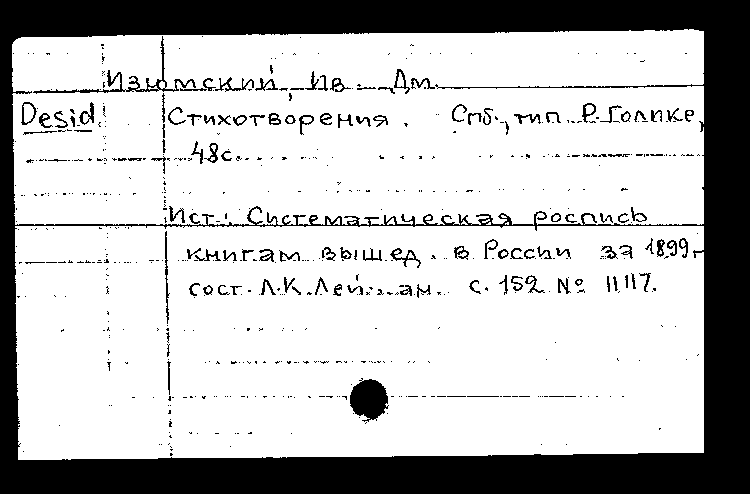 Изюмский, Ив. Дм.
Desid. Стихотворения. Спб., тип. Р. Голике,
48с.
Ист.: Систематическая роспись
книгам вышед. в России за 1899 г.
сост. Л.К. с. 152 № 11117.